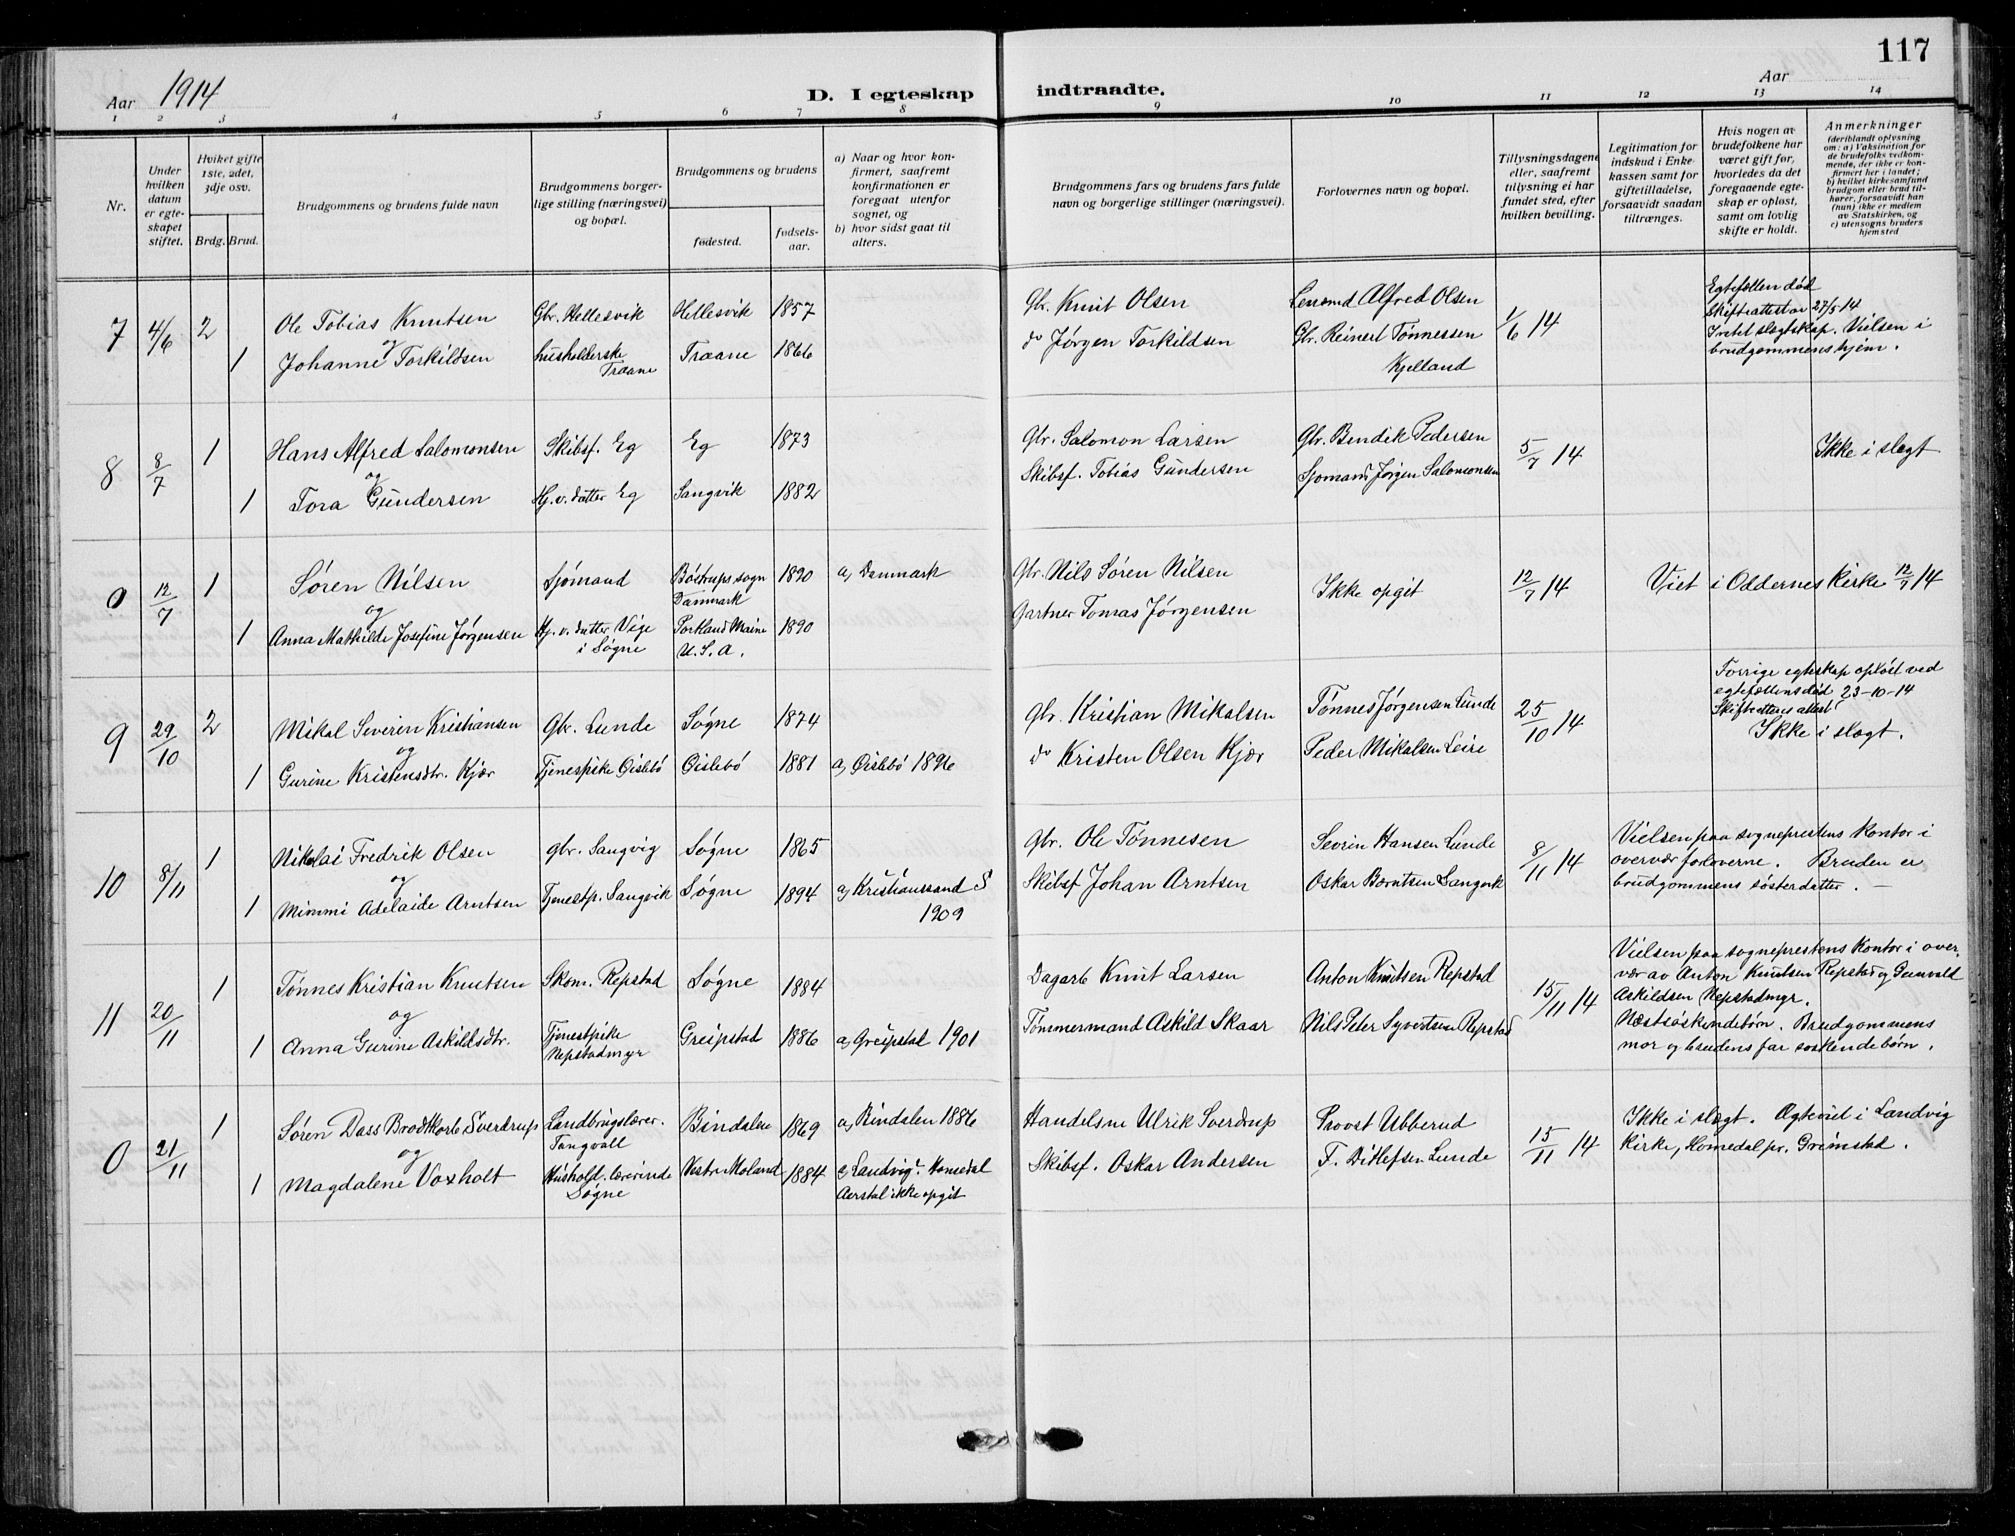 117
Aar 1914
D. I egteskap indtraadte.
Aar
1 2 3 4 5 6 7 8 9 10 11 12 13 14
Nr.
Under hvilken datum er egteskapet stiftet.
Hvilket gifte 1ste, 2det, 3dje osv.
Brdg. Brud.
Brudgommens og brudens fulde navn
Brudgommens borgerlige stilling (næringsvei) og bopæl.
Brudgommens og brudens
fødested.
fødselsaar.
a) Naar og hvor konfirmert, saafremt konfirmationen er foregaat utenfor sognet, og
b) hvor sidst gaat til alters.
Brudgommens fars og brudens fars fulde navn og borgerlige stillinger (næringsvei).
Forlovernes navn og bopæl.
Tillysningsdagene eller, saafremt tillysning ei har fundet sted, efter hvilken bevilling.
Legitimation for indskud i Enkekassen samt for giftetilladelse, forsaavidt saadan tiltrænges.
Hvis nogen av brudefolkene har været gift før, hvorledes da det foregaaende egteskap er opløst, samt om lovlig skifte er holdt.
Anmerkninger (deriblandt oplysning om: a) Vaksination for de brudefolks vedkommende, der ikke er konfirmert her i landet; b) hvilket kirkesamfund brudgom eller brud tilhører, forsaavidt han (hun) ikke er medlem av Statskirken, og c) utensogns bruders hjemsted
7 4/6 2 Ole Tobias Knutsen Gbr. Hellesvik Hellesvik 1857 Gbr. Knut Olsen Lensmd Alfred Olsen 1/6 14 Egtefællen død
og Skifteattest av 27/5 14
1 Johanne Torkildsen husholderske Traane Traane 1866 do Jørgen Torkildsen Gbr. Reinert Tønnessen Kjelland Intet slegtskap. Vielsen i brudgommens hjem.
8 8/7 1 Hans Alfred Salomonsen Skibsf. Eg Eg 1873 Gbr. Salomon Larsen Gbr. Bendik Pedersen 5/7 14 Ikke i slegt
og
1 Tora Gundersen Hj. v. datter Eg Sangvik 1882 Skibsf. Tobias Gundersen Sjømand Jørgen Salomonsen
0 12/7 1 Søren Nilsen Sjømand Bøstrups sogn Danmark 1890 a) Danmark Gbr. Nils Søren Nilsen Ikke opgit 12/7 14 Viet i Oddernes Kirke 12/7 14
og
1 Anna Mathilde Josefine Jørgensen Hj. v. datter Vige i Søgne Portland Maine U.S.A. 1890 Gartner Tomas Jørgensen
9 29/10 2 Mikal Severin Kristiansen Gbr. Lunde Søgne 1874 Gbr. Kristian Mikalsen Tønnes Jørgensen Lunde 25/10 14 Forrige egteskap opløst ved egtefællens død 23-10-14
og Skifterettens attest
1 Gurine Kristensdtr. Kjær Tjenestpike Øislebø Øislebø 1881 a) Øislebø 1896 do Kristen Olsen Kjær Peder Mikalsen Leire Ikke i slegt.
10 8/11 1 Nikolai Fredrik Olsen gbr. Sangvig Søgne 1865 Gbr. Ole Tønnesen Sevrin Hansen Lunde 8/11 14 Vielsen paa sogneprestens kontor i
og overvær forloverne. Bruden er
1 Mimmi Adelaide Arntsen Tjenestp. Sangvik Søgne 1894 a) Kristianssand S 1909 Skibsf Johan Arntsen Oskar Berntsen Sangvik brudgommens søsterdatter. —
11 20/11 1 Tønnes Kristian Knutsen Skom. Repstad Søgne 1884 Dagarb Knut Larsen Anton Knutsen Repstad 15/11 14 Vielsen paa sogneprestens kontor i overvær av Anton Knutsen Repstad og Gunvald
og Askildsen Repstadmyr.
1 Anna Gurine Askildsdtr. Tjenestpike Repstadmyr Greipstad 1886 a) Greipstad 1901 Tømmermand Askild Skaar Nils Peter Syvertsen Repstad Næstsøskendebørn. Brudgommens mor og brudens far søskendebørn.
0 21/11 1 Søren Dass Brodtkorb Sverdrup Landbrugslærer. Tangvall Bindalen 1869 a) Bindalen 1886 Handelsm Ulrik Sverdrup Provst Ubberud 15/11 14 Ikke i slegt. Ægteviet i Landvig
og Kirke, Homedal pr. Grimstad.
1 Magdalene Voxholt Hushold. lærerinde Søgne Vestre Moland 1884 a) Landvig, Homedal Aarstal ikke opgit Skibsf. Oskar Andersen F. Ditlefsen Lunde